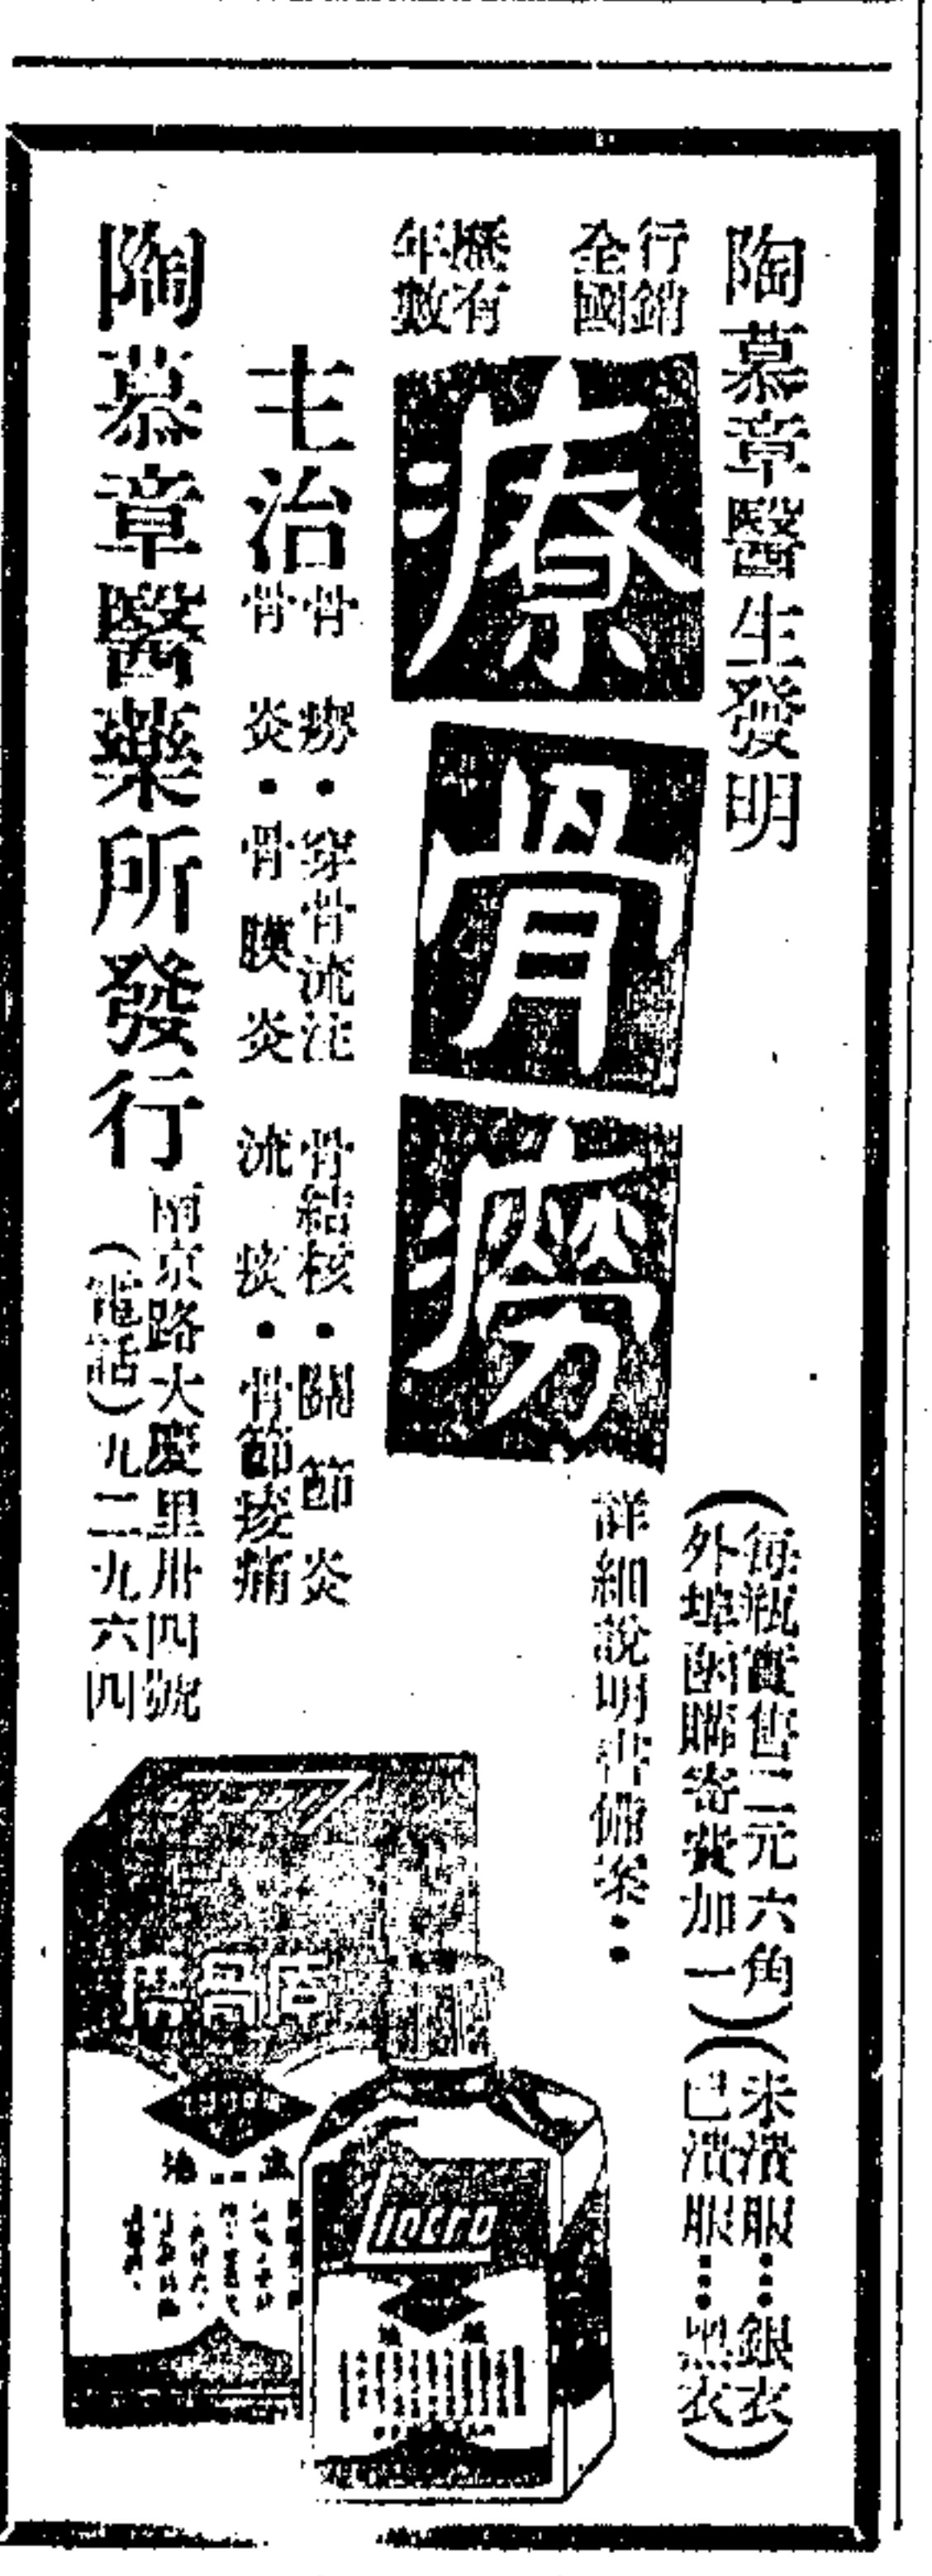 陶慕章醫生發明
行銷全國
歷有年數
療骨癆
(每瓶實售二元六角
外埠函購寄費加一)
(未潰服⋯銀衣
已潰服⋯黑衣)
詳細說明書備索••
主治
骨癆•穿骨流注 骨結核•關節炎
骨炎•骨膜炎 流痰•骨節痠痛
陶慕章醫藥所發行
南京路大慶里卅四號
(電話)九二九六四
Tincro